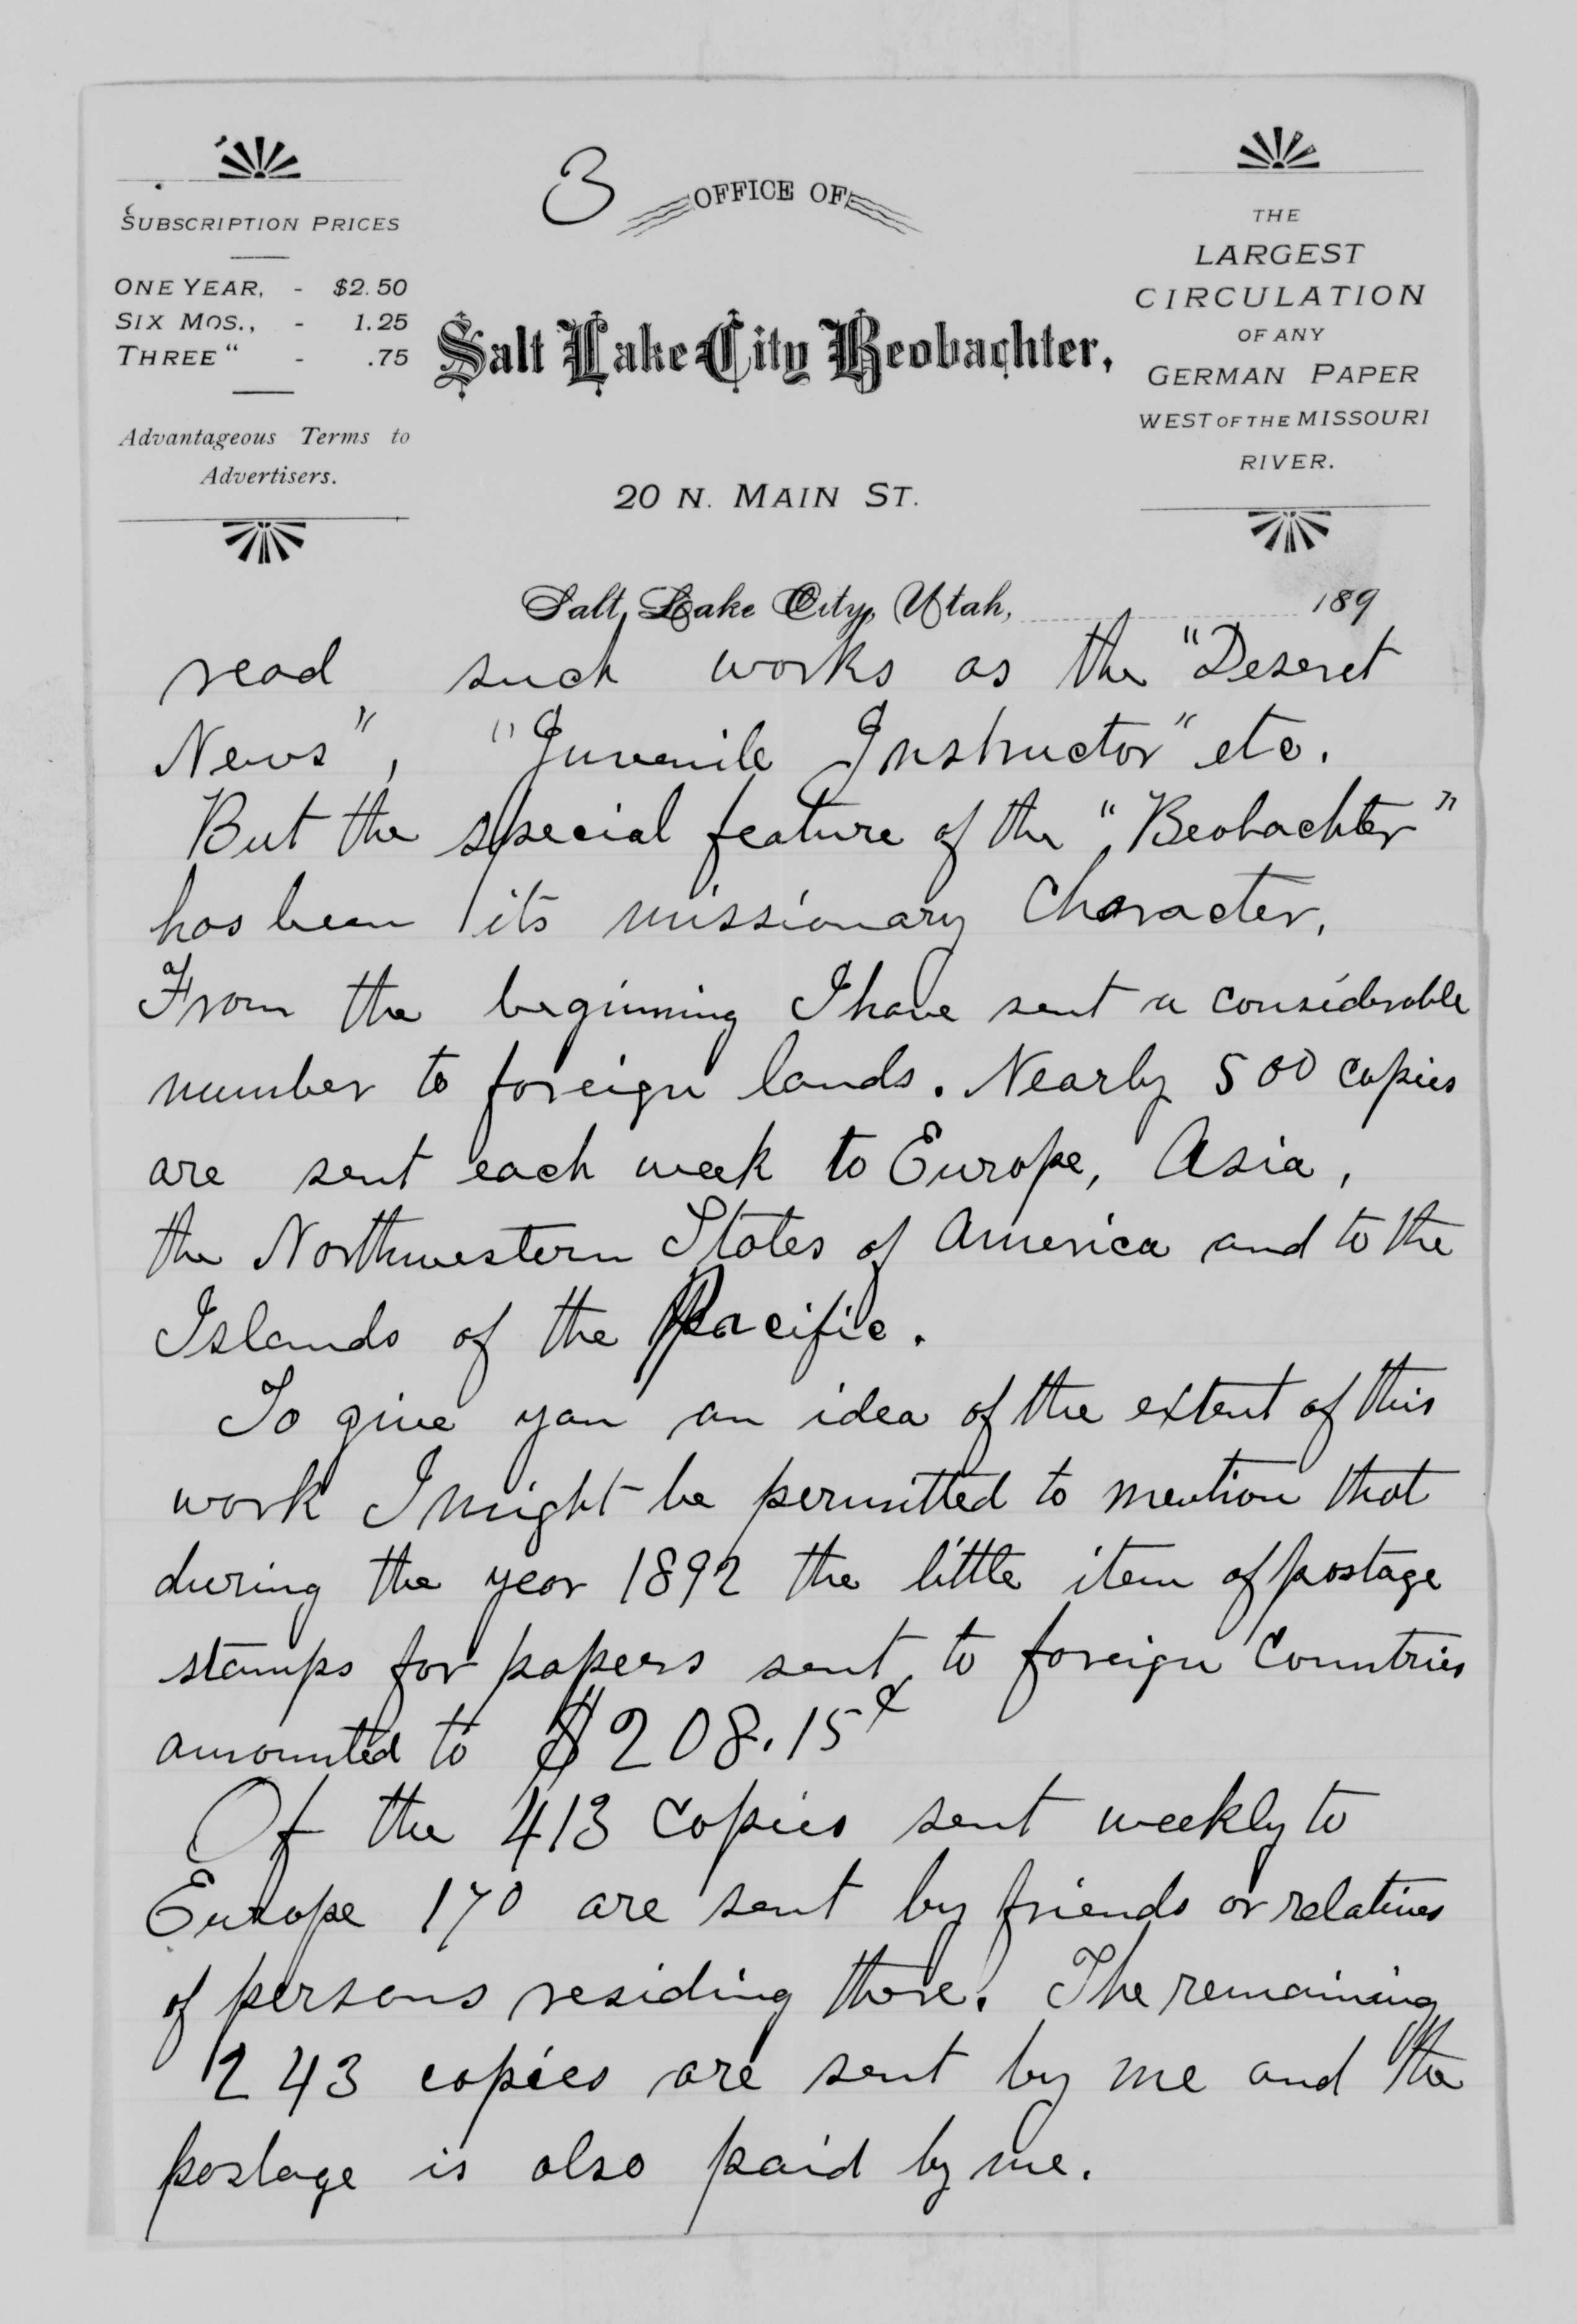 3
OFFICE OF
SUBSCRIPTION PRICES
ONE YEAR, - $2.50
SIX MOS., - 1.25
THREE " - .75
Advantageous Terms to
Advertisers.
Salt Lake City Beobachter,
20 N. MAIN ST.
THE
LARGEST
CIRCULATION
OF ANY
GERMAN PAPER
WEST OF THE MISSOURI
RIVER.
Salt Lake City, Utah, 189
read such works as the "Deseret
News", "Juvenile Instructor" etc.
But the special feature of the "Beobachter"
has been its missionary Character.
From the beginning I have sent a considerable
number to foreign lands. Nearly 500 copies
are sent each week to Europe, Asia,
the Northwestern States of America and to the
Islands of the Pacific.
To give you an idea of the extent of this
work I might be permitted to mention that
during the year 1892 the little item of postage
stamps for papers sent to foreign Countries
amounted to $208.15¢
Of the 413 Copies sent weekly to
Europe 170 are sent by friends or relatives
of persons residing there. The remaining
243 copies are sent by me and the
postage is also paid by me.